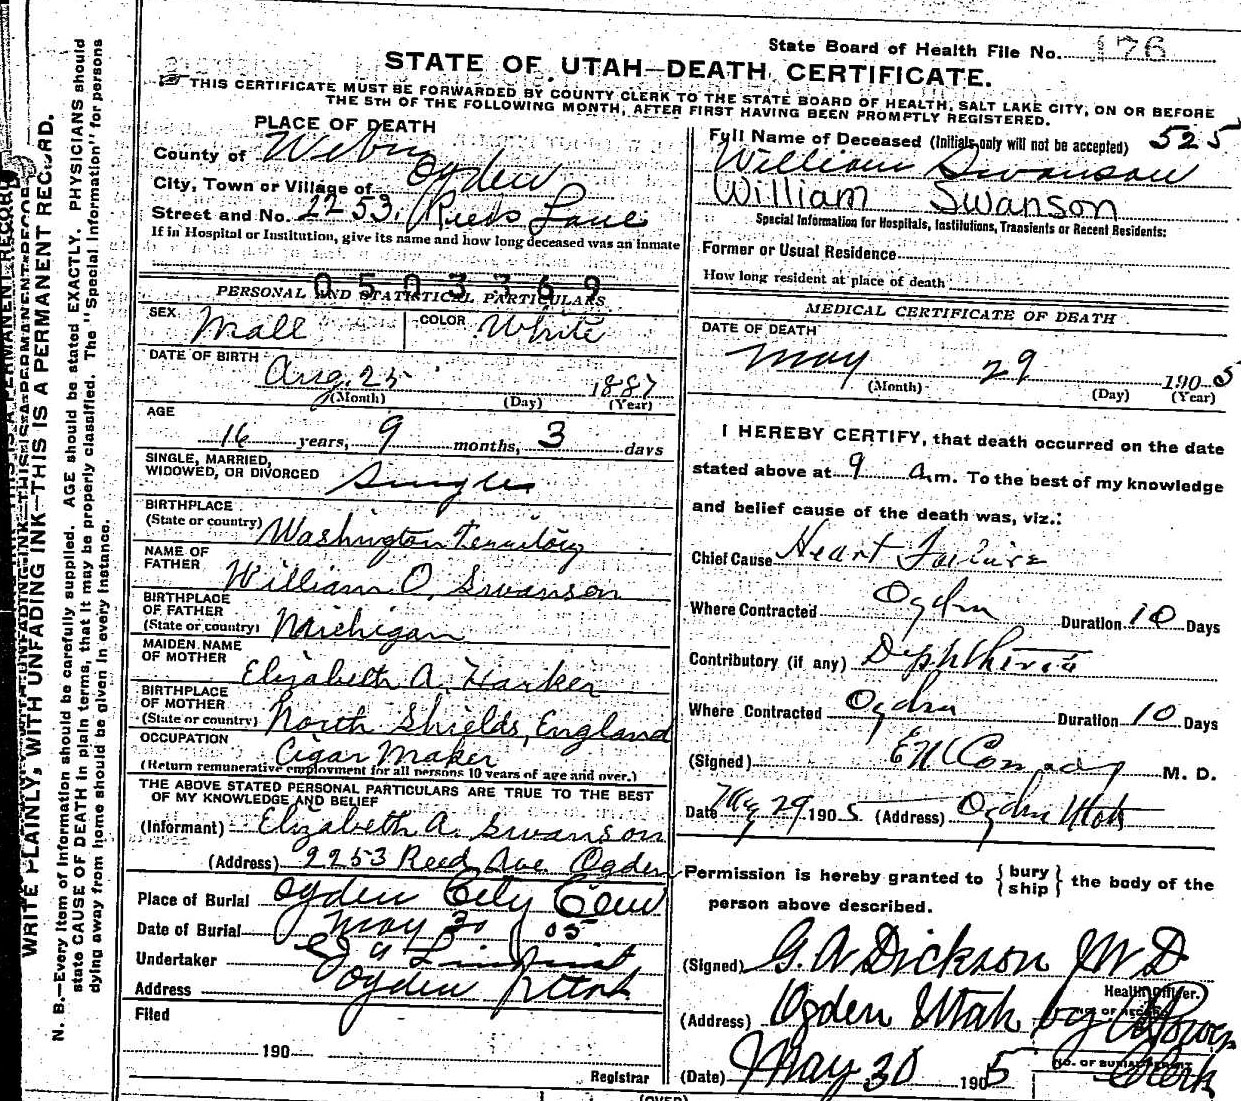 State Board of Health File No. 176
STATE OF UTAH—DEATH CERTIFICATE.
THIS CERTIFICATE MUST BE FORWARDED BY COUNTY CLERK TO THE STATE BOARD OF HEALTH, SALT LAKE CITY, ON OR BEFORE
THE 5TH OF THE FOLLOWING MONTH, AFTER FIRST HAVING BEEN PROMPTLY REGISTERED.
PLACE OF DEATH
County of Weber
City, Town or Village of Ogden
Street and No. 2253, Reeds Lane
If in Hospital or Institution, give its name and how long deceased was an inmate
0503369
PERSONAL AND STATISTICAL PARTICULARS
SEX Male COLOR White
DATE OF BIRTH
Aug. 25 1887
(Month) (Day) (Year)
AGE
16 years, 9 months, 3 days
SINGLE, MARRIED,
WIDOWED, OR DIVORCED Single
BIRTHPLACE
(State or country) Washington Territory
NAME OF
FATHER William O. Swanson
BIRTHPLACE
OF FATHER
(State or country) Michigan
MAIDEN NAME
OF MOTHER Elizabeth A. Harker
BIRTHPLACE
OF MOTHER
(State or country) North Shields, England
OCCUPATION Cigar Maker
(Return remunerative employment for all persons 10 years of age and over.)
THE ABOVE STATED PERSONAL PARTICULARS ARE TRUE TO THE BEST
OF MY KNOWLEDGE AND BELIEF
(Informant) Elizabeth A. Swanson
(Address) 2253 Reed Ave Ogden
Place of Burial Ogden City Cem
Date of Burial May 30 05
Undertaker
Address Ogden Utah
Filed
190
Registrar
Full Name of Deceased (Initials only will not be accepted) 525
William Swanson
William Swanson
Special Information for Hospitals, Institutions, Transients or Recent Residents:
Former or Usual Residence
How long resident at place of death
MEDICAL CERTIFICATE OF DEATH
DATE OF DEATH
May 29 1905
(Month) (Day) (Year)
I HEREBY CERTIFY, that death occurred on the date
stated above at 9 a.m. To the best of my knowledge
and belief cause of the death was, viz.:
Chief Cause Heart Failure
Where Contracted Ogden Duration 10 Days
Contributory (if any) Diphtheria
Where Contracted Ogden Duration 10 Days
(Signed) M. D.
Date May 29 1905 (Address) Ogden Utah
Permission is hereby granted to {bury ship} the body of the
person above described.
(Signed) G. W Dickson M D
Health Officer.
(Address) Ogden Utah by
(Date) May 30 1905 Clerk
NO. OF BURIAL PERMIT
(OVER)
WRITE PLAINLY, WITH UNFADING INK—THIS IS A PERMANENT RECORD.
N. B.—Every item of information should be carefully supplied. AGE should be stated EXACTLY. PHYSICIANS should
state CAUSE OF DEATH in plain terms, that it may be properly classified. The "Special Information" for persons
dying away from home should be given in every instance.